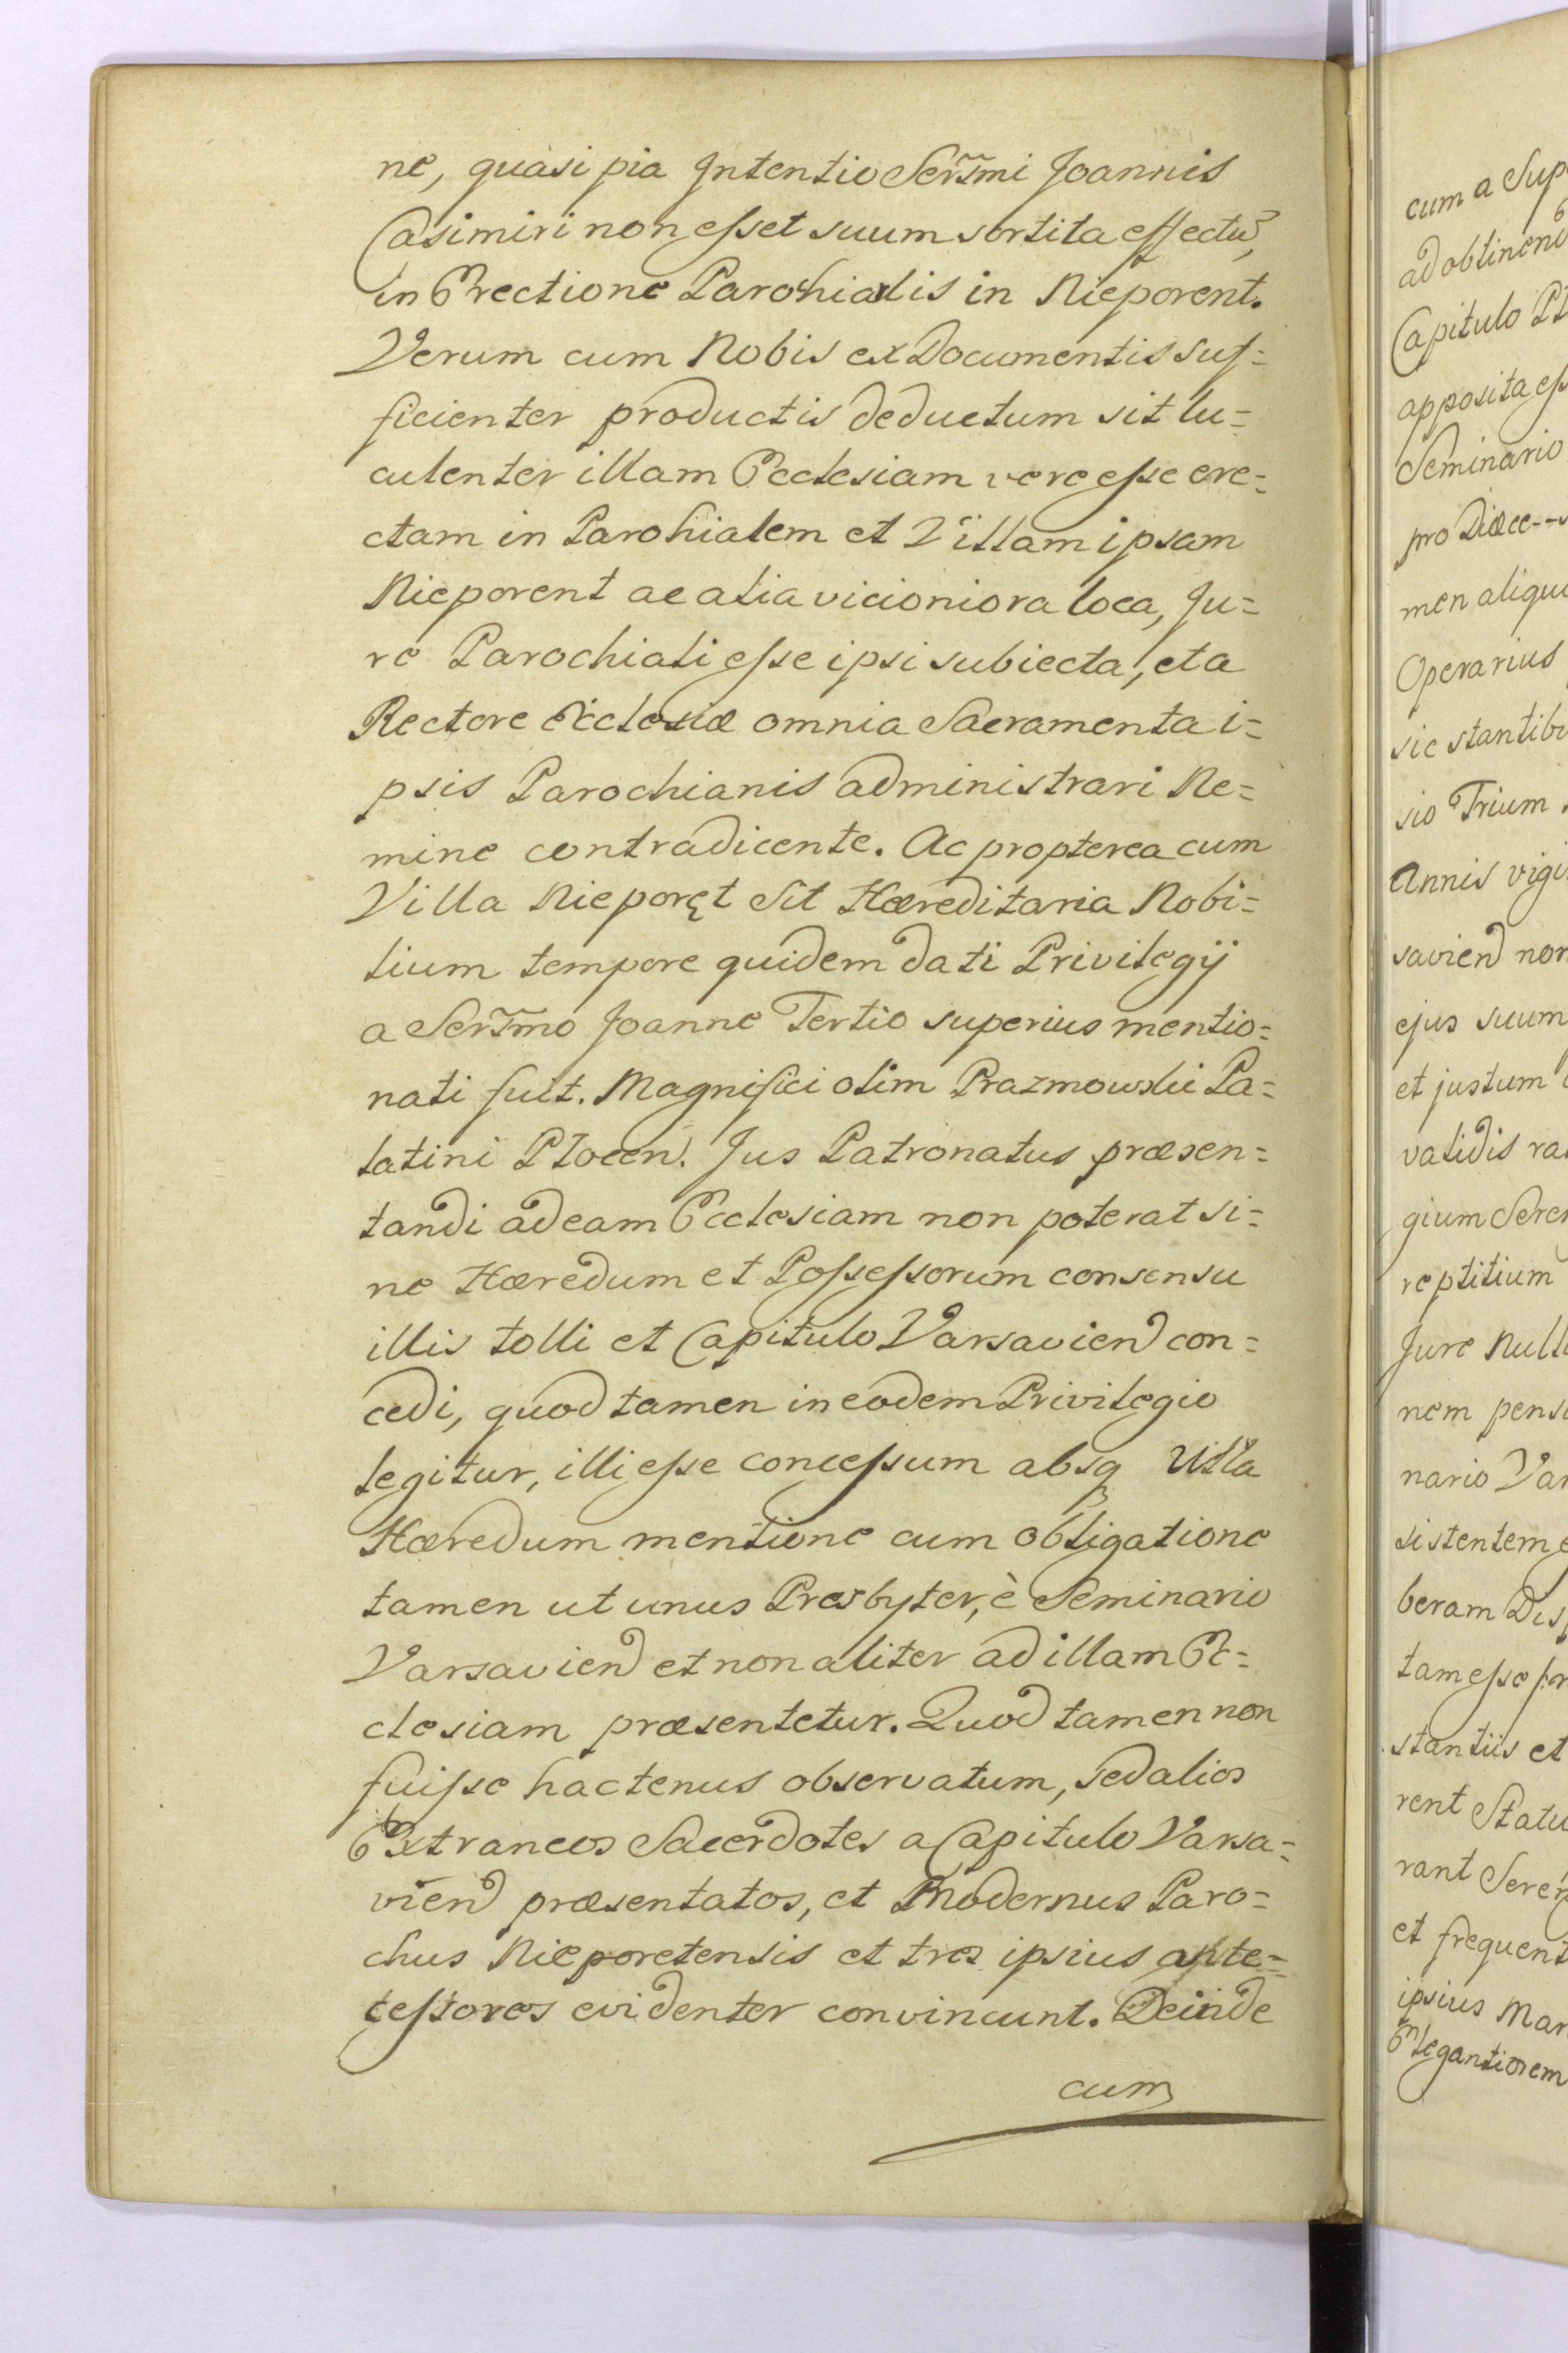 ne, quasi pia Intentio Serm̃i Joannis
Casimiri non esset suum sortita effectũ,
in Erectione Parohialis in Nieporent.
Verum cum Nobis ex Documentis suf=
ficienter productis deductum sit lu=
culenter illam Ecclesiam vere esse ere=
ctam in Parohialem et Villam ipsam
Nieporent ac alia vicioniora loca, Ju=
re Parochiali esse ipsi subiecta, et a
Rectore Ecclesiæ omnia Sacramenta i=
psis Parochianis administrari Ne=
mine contradicente. Ac propterea cum
Villa Nieporęt Sit Hæreditaria Nobi=
lium tempore quidem dati Privilegij
a Serm̃o Joanne Tertio superius mentio=
nati fuit. Magnifici olim Prazmowski Pa=
latini Plocen. Jus Patronatus præsen=
tandi ad eam Ecclesiam non poterat si=
ne Hæredum et Possessorum consensu
illis tolli et Capitulo Varsavien con=
cedi, quod tamen in eodem Privilegio
legitur, illi esse concessum absq Ulla
Hæredum mentione cum obligatione
tamen ut unus Presbyter, è Seminario
Varsavien et non aliter ad illam Ec=
clesiam præsentetur. Quod tamen non
fuisse hactenus observatum, sed alios
Extraneos Sacerdotes a Capitulo Varsa=
vien præsentatos, et Modernus Paro=
chus Nieporetensis et tres ipsius ante=
cessores evidenter convincunt. Deinde
cum
cum a Sup
ad obtinen
Capitulo Pl
apposita es
Seminario
pro Diæce--
men aliqu
Operarius
sic stantib
sio Trium
Annis vigi
savien non
ejus suum
et justum
validis ra
gium Seren
reptitium
Jure Null
nem pens
nario Var
sistentem
beram Dis
tam esse pr
stantiis et
rent Statu
rant Seren
et frequent
ipsius Mar
Elegantiorem